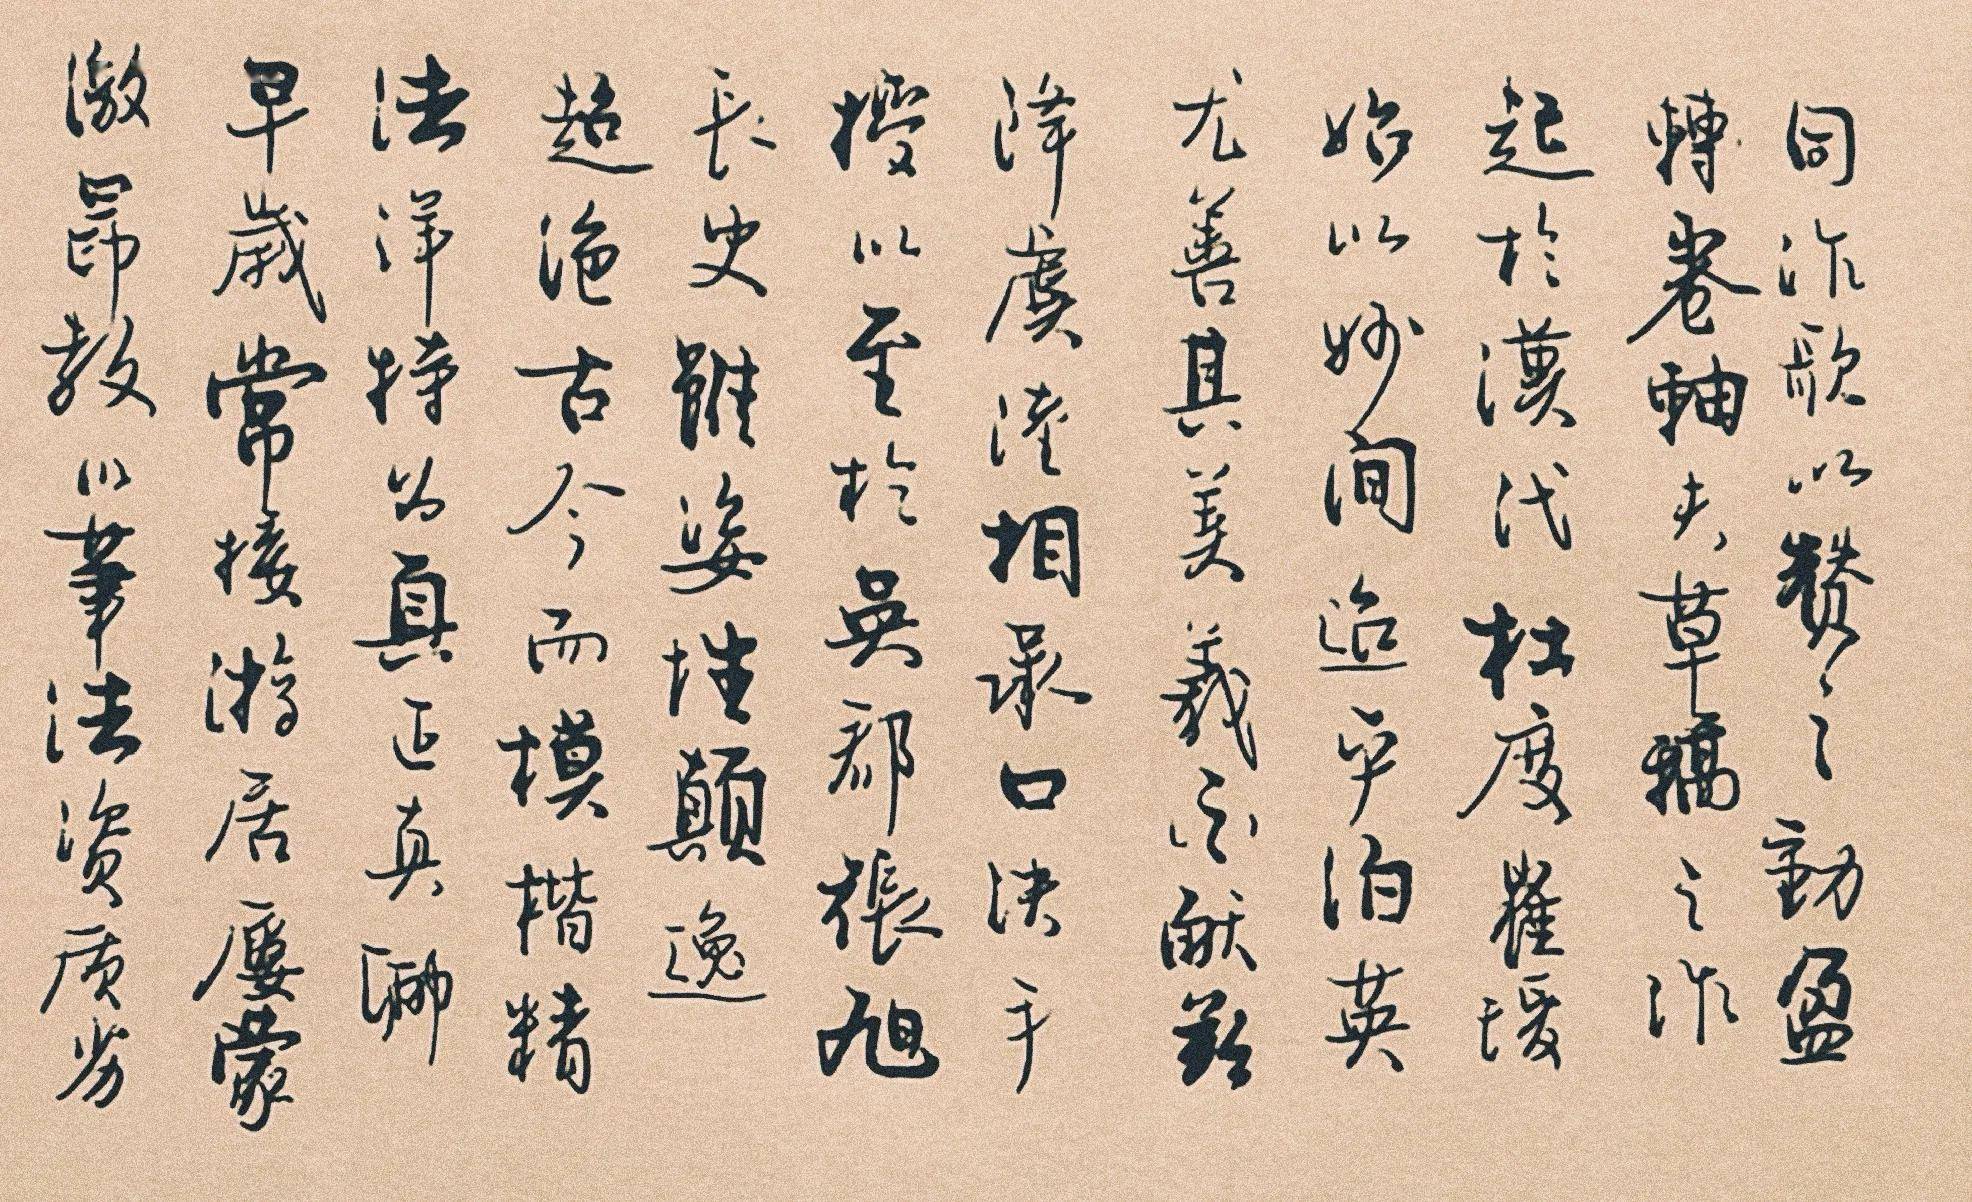 同作歌以贊之動盈
轉卷軸夫草稿之作
起於漢代杜度崔瑗
始以妙聞迨乎伯英
尤善其美羲獻茲
降虞陸相承口訣手
授以至於吳郡張旭
長史雖姿性顛逸
超絕古今而模楷精
法詳特為真正真卿
早歲常接游居屢蒙
激昂教以筆法資質劣